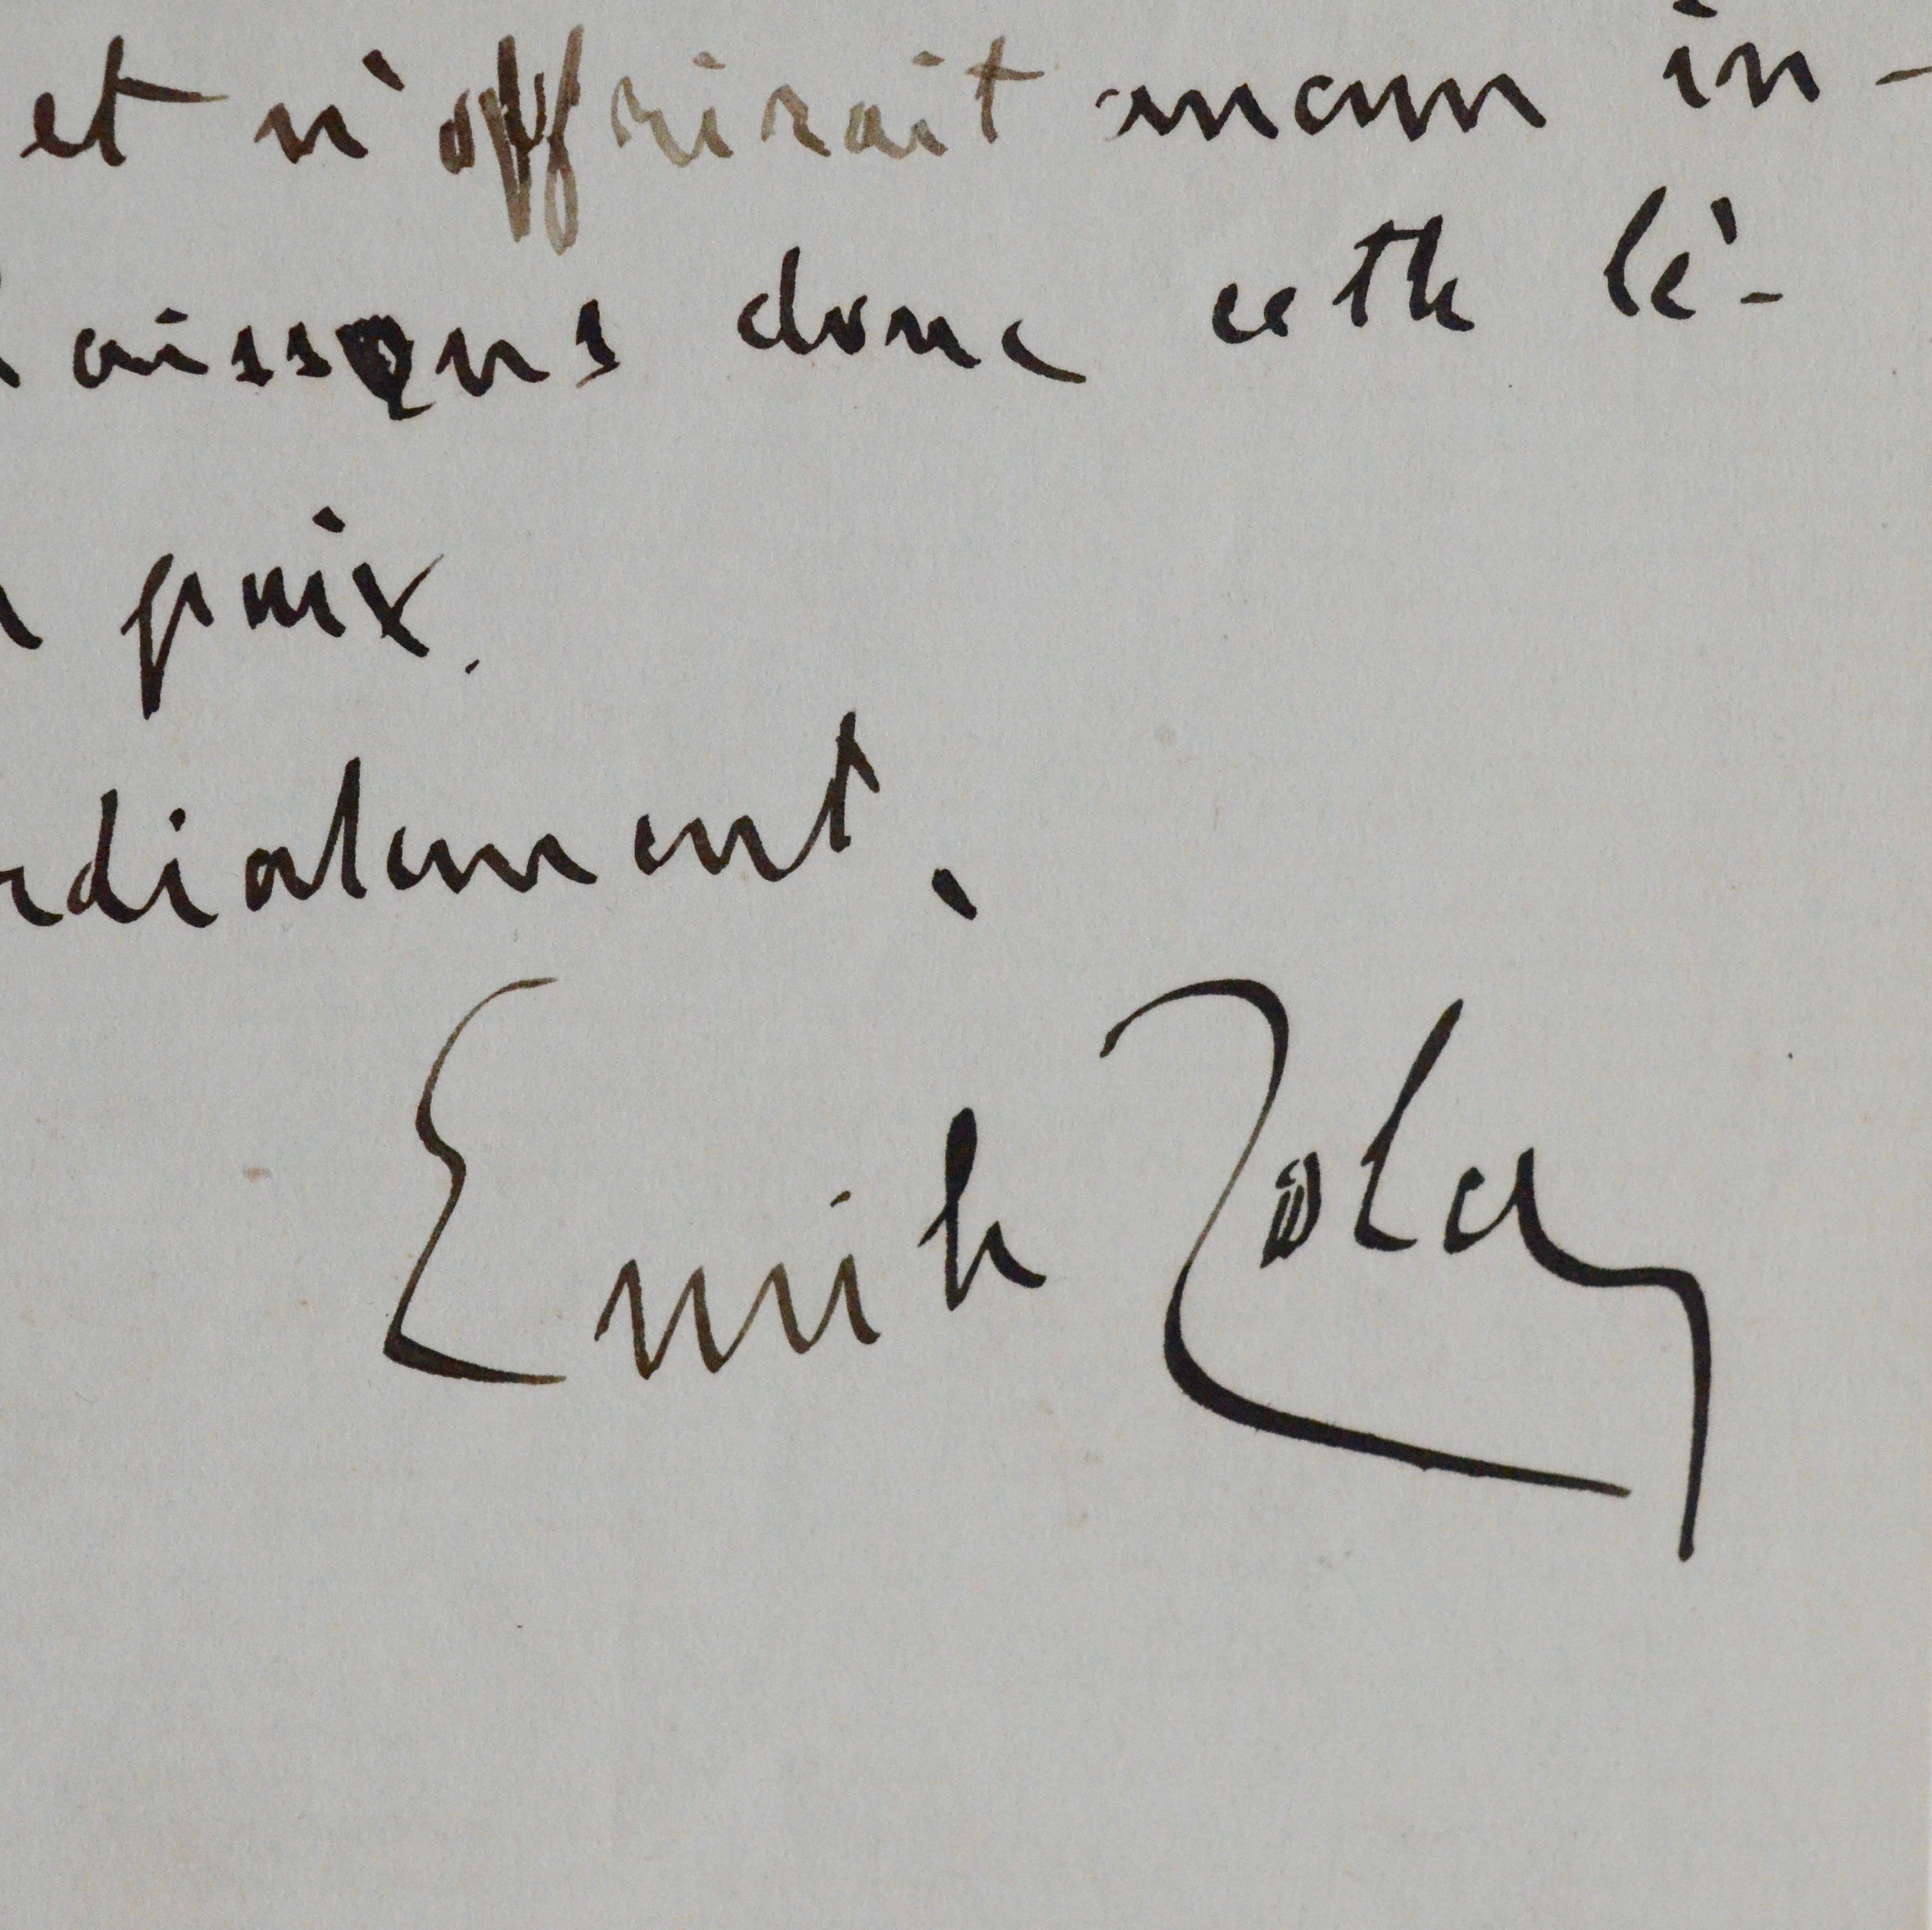 et n'offrirait aucun in-
aissons donc cette lé-
paix.
rdialement.
Emile Zola